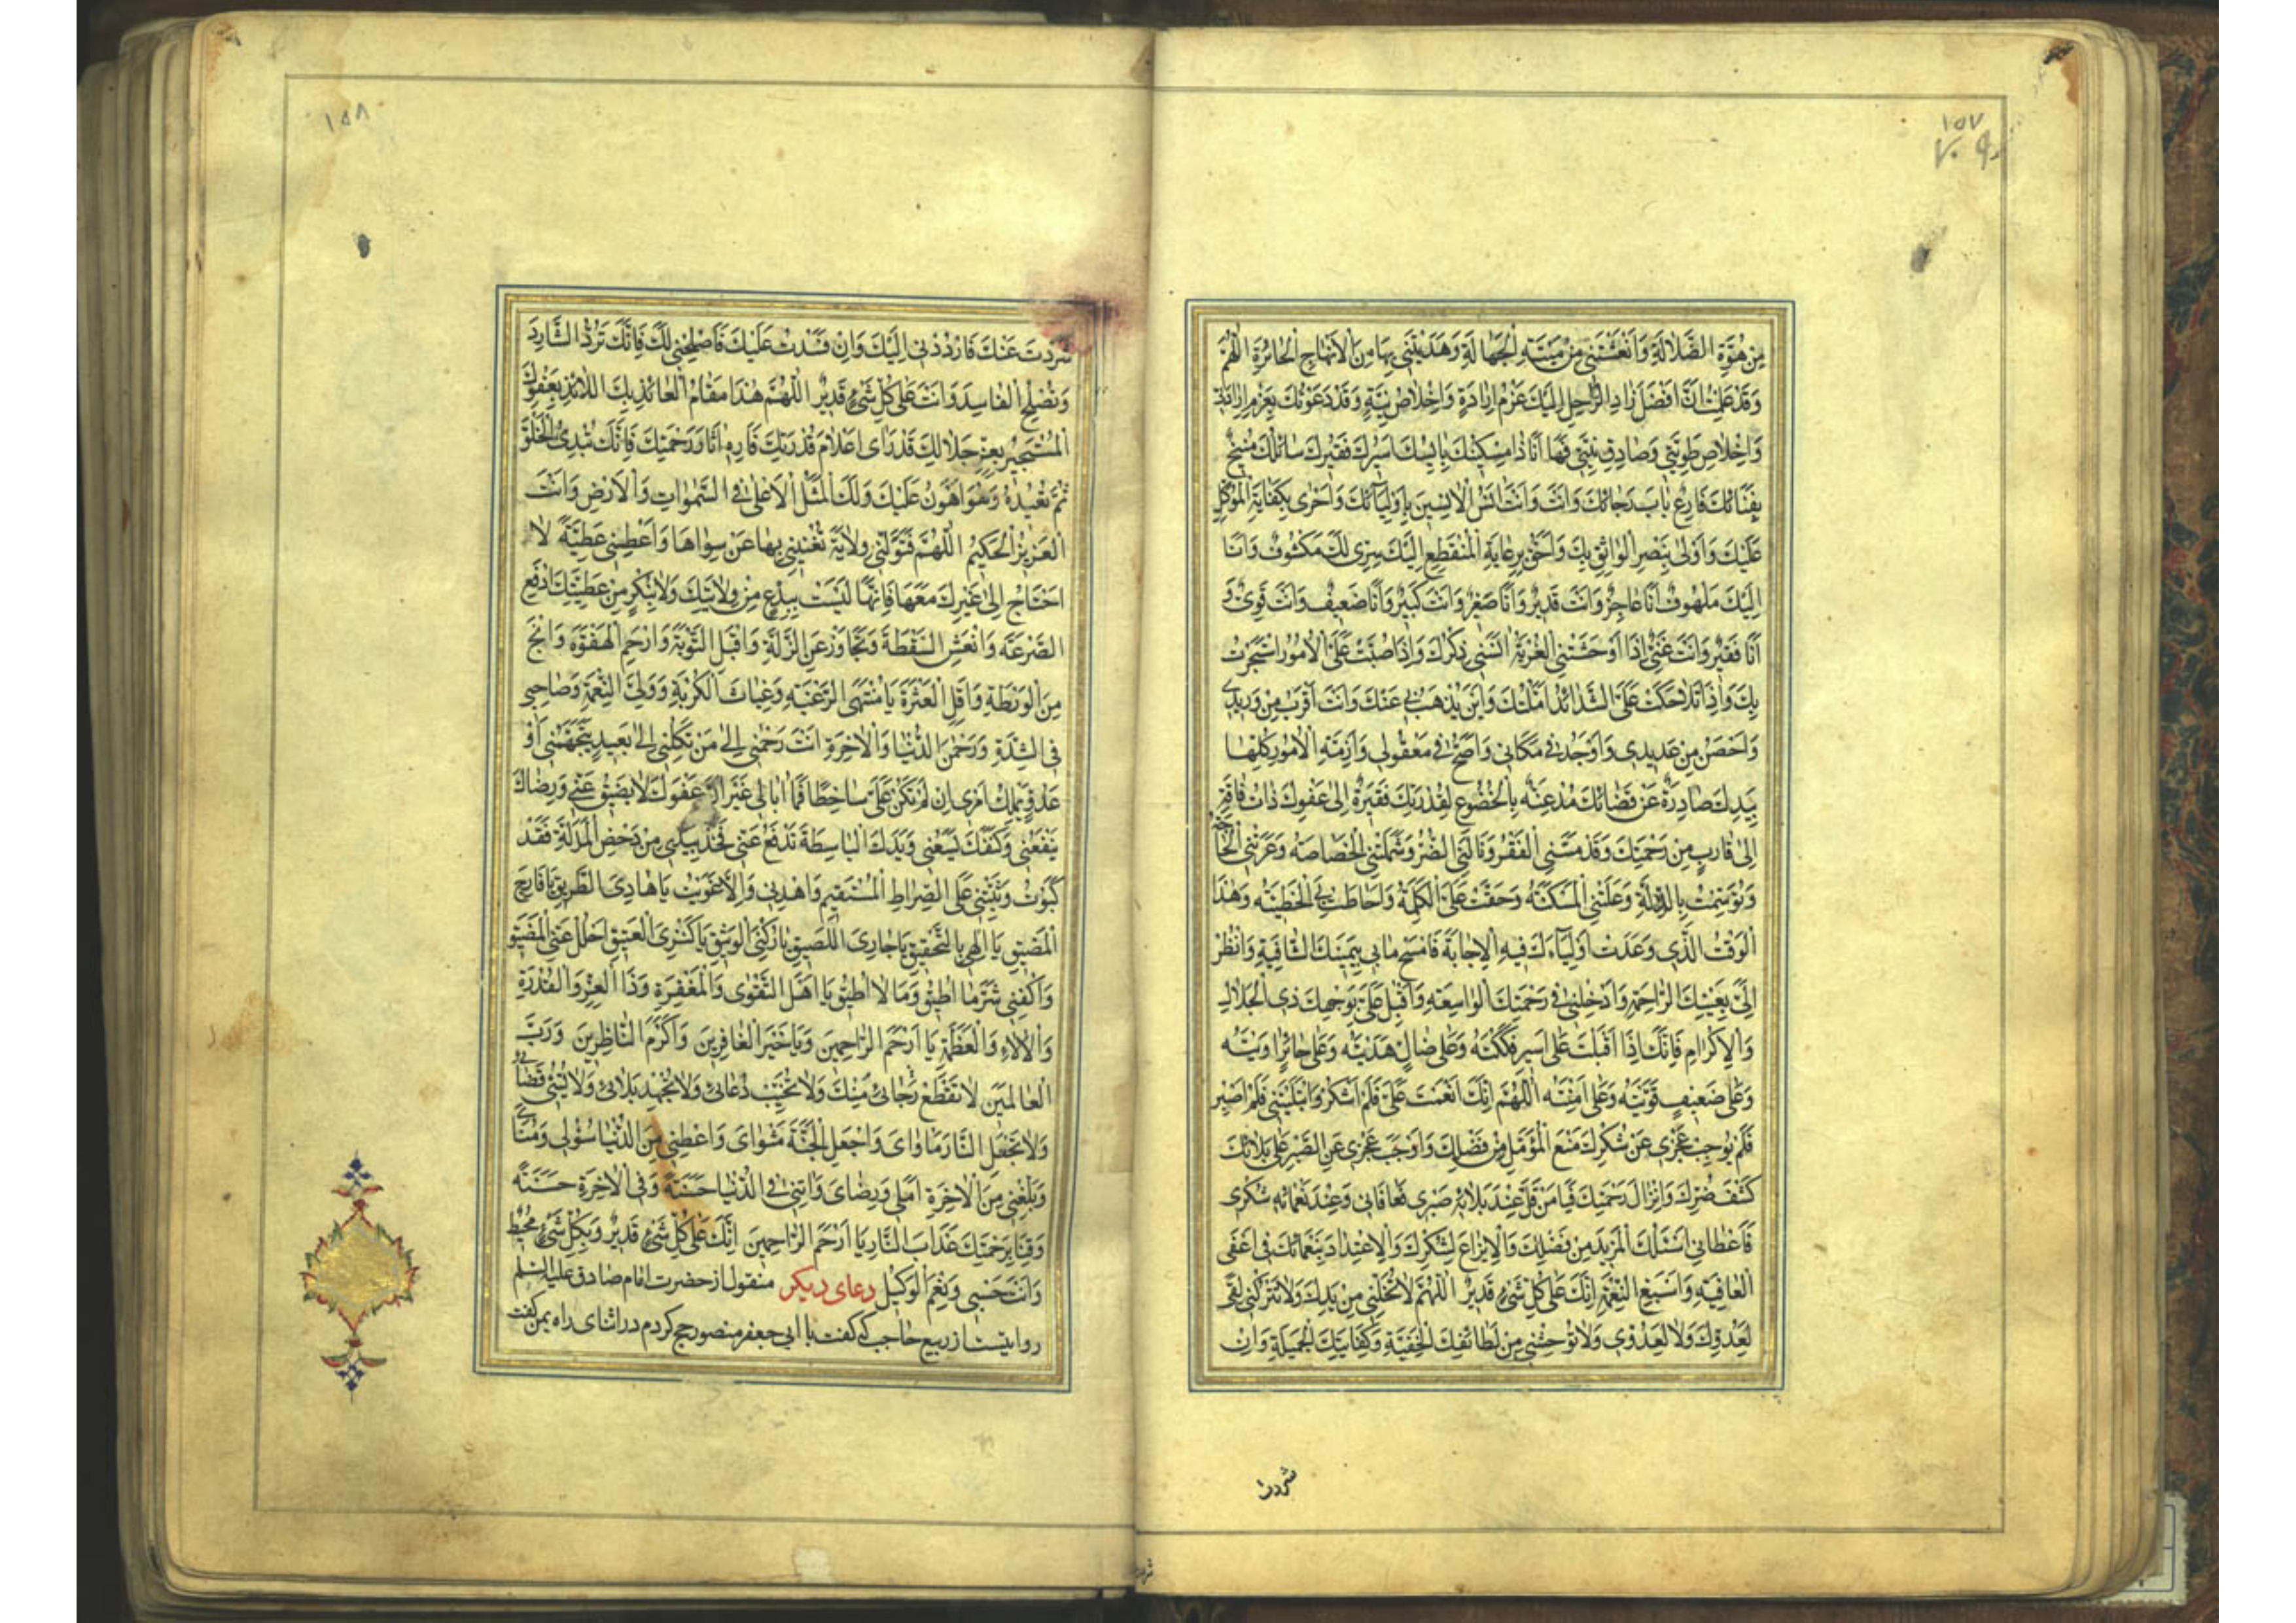 ١٥٧
مِنْ هُوَّةِ الضَّلالَةِ وَاَنْعَشْتَنى مِنْ مَيْتَةِ الْجَهالَةِ وَهَدَيْتَنى بِها مِنَ الْاَنْهاجِ الْحائِرَةِ اَللّهُمَّ
وَقَدْ عَلِمْتُ اَنَّ اَفْضَلَ زادِ الرّاحِلِ اِلَيْكَ عَزْمُ اِرادَةٍ وَاِخْلاصُ نِيَّةٍ وَقَدْ دَعَوْتُكَ بِعَزْمِ اِرادَتى
وَاِخْلاصِ طَوِيَّتى وَصادِقِ نِيَّتى فَها اَنَا ذا مِسْكينُكَ بائِسُكَ اَسيرُكَ فَقيرُكَ سائِلُكَ مُنيخٌ
بِفِنائِكَ قارِعُ بابَ رَجائِكَ وَاَنْتَ وَاَنْتَ اَنَسُ الْانِسينَ بِاَوْلِيائِكَ وَاَحْرى بِكِفايَةِ الْمُتَوَكِّلِ
عَلَيْكَ وَاَوْلى بِنَصْرِ الْواثِقِ بِكَ وَاَحَقُّ بِرِعايَةِ الْمُنْقَطِعِ اِلَيْكَ سِرّى لَكَ مَكْشُوفٌ وَاَنَا
اِلَيْكَ مَلْهُوفٌ اَنَا عاجِزٌ وَاَنْتَ قَديرٌ وَاَنَا صَغيرٌ وَاَنْتَ كَبيرٌ وَاَنَا ضَعيفٌ وَاَنْتَ قَوِىٌّ وَ
اَنَا فَقيرٌ وَاَنْتَ غَنِىٌّ اِذا اَوْحَشَتْنِى الْغُرْبَةُ انَسَنى ذِكْرُكَ وَاِذا صُبَّتْ عَلَىَّ الْاُمُورُ اسْتَجَرْتُ
بِكَ وَاِذا تَلاحَكَتْ عَلَىَّ الشَّدائِدُ اَمَّلْتُكَ وَاَيْنَ يُذْهَبُ بى عَنْكَ وَاَنْتَ اَقْرَبُ مِنْ وَريدى
وَاَحْصَنُ مِنْ عَديدى وَاَوْجَدُ فى مَكانى وَاَصَحُّ فى مَعْقُولى وَاَزِمَّةُ الْاُمُورِ كُلِّها
بِيَدِكَ صادِرَةٌ عَنْ قَضائِكَ مُذْعِنَةٌ بِالْخُضُوعِ لِقُدْرَتِكَ فَقيرَةٌ اِلى عَفْوِكَ ذاتُ فاقَةٍ
اِلى قارِبٍ مِنْ رَحْمَتِكَ وَقَدْ مَسَّنِى الْفَقْرُ وَنالَنِى الضُّرُّ وَشَمَلَتْنِى الْخَصاصَةُ وَعَرَتْنِى الْحاجَةُ
وَتَوَسَّمْتُ بِالذِّلَّةِ وَعَلَتْنِى الْمَسْكَنَةُ وَحَقَّتْ عَلَىَّ الْكَلِمَةُ وَاَحاطَتْ بِىَ الْخَطيئَةُ وَهذَا
الْوَقْتُ الَّذى وَعَدْتَ اَوْلِياءَكَ فيهِ الْاِجابَةَ فَامْسَحْ ما بى بِيَمينِكَ الشّافِيَةِ وَانْظُرْ
اِلَىَّ بِعَيْنِكَ الرّاحِمَةِ وَاَدْخِلْنى فى رَحْمَتِكَ الْواسِعَةِ وَاَقْبِلْ عَلَىَّ بِوَجْهِكَ ذِى الْجَلالِ
وَالْاِكْرامِ فَاِنَّكَ اِذا اَقْبَلْتَ عَلى اَسيرٍ فَكَكْتَهُ وَعَلى ضالٍّ هَدَيْتَهُ وَعَلى حائِرٍ اوَيْتَهُ
وَعَلى ضَعيفٍ قَوَّيْتَهُ وَعَلى اَمِنْتَهُ اَللّهُمَّ اِنَّكَ اَنْعَمْتَ عَلَىَّ فَلَمْ اَشْكُرْ وَابْتَلَيْتَنى فَلَمْ اَصْبِرْ
فَلَمْ يُوجِبْ عَجْزى عَنْ شُكْرِكَ مَنْعَ الْمُؤَمَّلِ مِنْ فَضْلِكَ وَاَوْجَبَ عَجْزى عَنِ الصَّبْرِ عَلى بَلائِكَ
كَشْفَ ضُرِّكَ وَاِنْزالَ رَحْمَتِكَ فَيا مَنْ قَلَّ عِنْدَ بَلائِهِ صَبْرى فَعافانى وَعِنْدَ نَعْمائِهِ شُكْرى
فَاَعْطانى اَسْئَلُكَ الْمَزيدَ مِنْ فَضْلِكَ وَالْاِيزاعَ لِشُكْرِكَ وَالْاِعْتِدادَ بِنَعْمائِكَ فى اَعْفَى
الْعافِيَةِ وَاَسْبَغِ النِّعْمَةِ اِنَّكَ عَلى كُلِّ شَىْءٍ قَديرٌ اَللّهُمَّ لا تُخَلِّنى مِنْ يَدِكَ وَلا تَتْرُكْنى لِقىً
لِعَدُوِّكَ وَلا لِعَدُوّى وَلا تُوحِشْنى مِنْ لَطائِفِكَ الْخَفِيَّةِ وَكِفايَتِكَ الْجَميلَةِ وَاِنْ
شردت
١٥٨
شَرَدْتُ عَنْكَ فَارْدُدْنى اِلَيْكَ وَاِنْ فَسَدْتُ عَلَيْكَ فَاَصْلِحْنى لَكَ فَاِنَّكَ تَرُدُّ الشّارِدَ
وَتُصْلِحُ الْفاسِدَ وَاَنْتَ عَلى كُلِّ شَىْءٍ قَديرٌ اَللّهُمَّ هذا مَقامُ الْعائِذِ بِكَ اللّائِذِ بِعَفْوِكَ
الْمُسْتَجيرِ بِعِزِّ جَلالِكَ قَدْ رَاى اَعْلامَ قُدْرَتِكَ فَاَرِهِ اثارَ رَحْمَتِكَ فَاِنَّكَ تُبْدِئُ الْخَلْقَ
ثُمَّ تُعيدُهُ وَهُوَ اَهْوَنُ عَلَيْكَ وَلَكَ الْمَثَلُ الْاَعْلى فِى السَّمواتِ وَالْاَرْضِ وَاَنْتَ
الْعَزيزُ الْحَكيمُ اَللّهُمَّ فَتَوَلَّنى وِلايَةً تُغْنينى بِها عَنْ سِواها وَاَعْطِنى عَطِيَّةً لا
اَحْتاجُ اِلى غَيْرِكَ مَعَها فَاِنَّها لَيْسَتْ بِبِدْعٍ مِنْ وِلايَتِكَ وَلا بِنُكْرٍ مِنْ عَطِيَّتِكَ اِدْفَعِ
الصَّرْعَةَ وَانْعَشِ السَّقْطَةَ وَتَجاوَزْ عَنِ الزَّلَّةِ وَاقْبَلِ التَّوْبَةَ وَارْحَمِ الْهَفْوَةَ وَانْجِ
مِنَ الْوَرْطَةِ وَاَقِلِ الْعَثْرَةَ يا مُنْتَهَى الرَّغْبَةِ وَغِياثَ الْكُرْبَةِ وَوَلِىَّ النِّعْمَةِ وَصاحِبى
فِى الشِّدَّةِ وَرَحْمنَ الدُّنْيا وَالْاخِرَةِ اَنْتَ رَحْمنى اِلى مَنْ تَكِلُنى اِلى بَعيدٍ يَتَجَهَّمُنى اَوْ
عَدُوٍّ يَمْلِكُ اَمْرى اِنْ لَمْ تَكُنْ عَلَىَّ ساخِطًا فَما اُبالى غَيْرَ اَنَّ عَفْوَكَ لا يَضيقُ عَنّى وَرِضاكَ
يَنْفَعُنى وَكَنَفَكَ يَسَعُنى وَيَدَكَ الْباسِطَةَ تَدْفَعُ عَنّى فَخُذْ بِيَدى مِنْ دَحْضِ الْمَذَلَّةِ فَقَدْ
كَبَوْتُ وَثَبِّتْنى عَلَى الصِّراطِ الْمُسْتَقيمِ وَاهْدِنى وَاِلّا غَوَيْتُ يا هادِىَ الطَّريقِ يا فارِجَ
الْمَضيقِ يا اِلهى بِالتَّحْقيقِ يا جارِىَ اللَّصيقَ يا رُكْنِىَ الْوَثيقَ يا كَنْزِىَ الْعَتيقَ اُحْلُلْ عَنِّى الْمَضيقَ
وَاكْفِنى شَرَّ ما اُطيقُ وَما لا اُطيقُ يا اَهْلَ التَّقْوى وَالْمَغْفِرَةِ وَذَا الْعِزِّ وَالْقُدْرَةِ
وَالْالاءِ وَالْعَظَمَةِ يا اَرْحَمَ الرّاحِمينَ وَيا خَيْرَ الْغافِرينَ وَاَكْرَمَ النّاظِرينَ وَرَبَّ
الْعالَمينَ لا تَقْطَعْ رَجائى مِنْكَ وَلا تُخَيِّبْ دُعائى وَلا تُجْهِدْ بَلائى وَلا تُسِئْ قَضائى
وَلا تَجْعَلِ النّارَ مَاْواىَ وَاجْعَلِ الْجَنَّةَ مَثْواىَ وَاَعْطِنى مِنَ الدُّنْيا سُؤْلى وَمُناىَ
وَبَلِّغْنى مِنَ الْاخِرَةِ اَمَلى وَرِضاىَ وَاتِنى فِى الدُّنْيا حَسَنَةً وَفِى الْاخِرَةِ حَسَنَةً
وَقِنا بِرَحْمَتِكَ عَذابَ النّارِ يا اَرْحَمَ الرّاحِمينَ اِنَّكَ عَلى كُلِّ شَىْءٍ قَديرٌ وَبِكُلِّ شَىْءٍ مُحيطٌ
وَاَنْتَ حَسْبى وَنِعْمَ الْوَكيلُ دعاى ديكر منقول از حضرت امام صادق عليه السلم
روايتست از ربيع حاجب كه كفت با ابى جعفر منصور حج كردم در اثناى راه بمن كفت